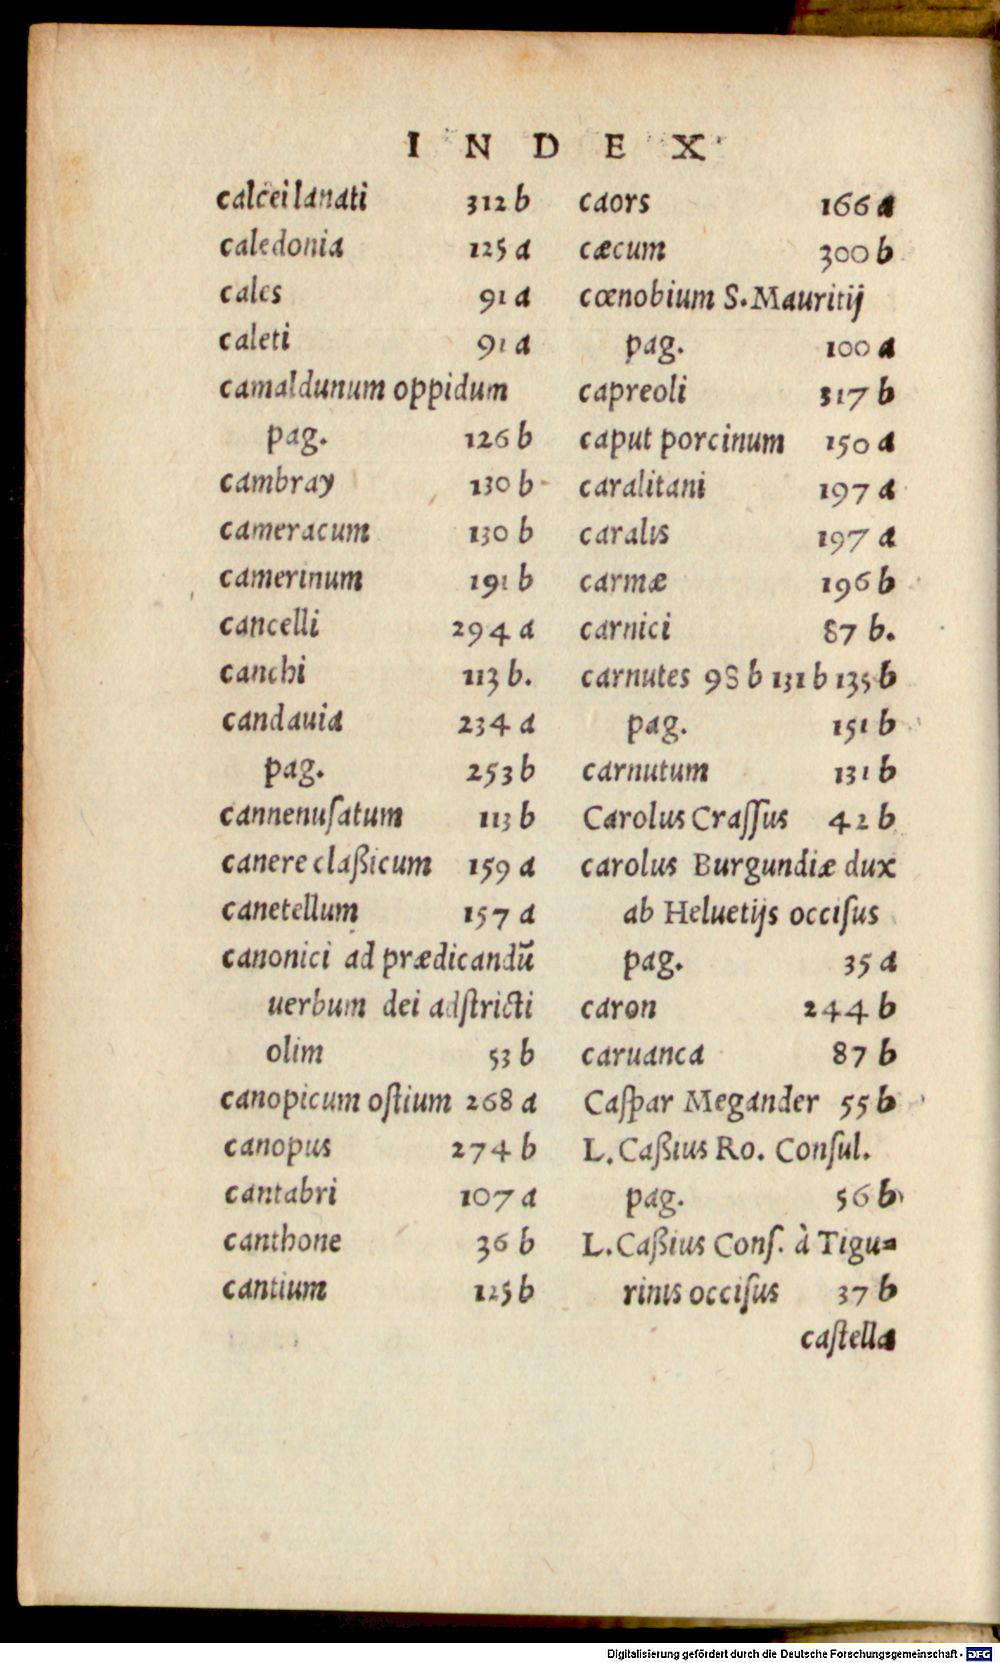 INDEX
calcei lanati 312 b
caledonia 125 a
cales 91 a
caleti 91 a
camaldunum oppidum
pag. 126 b
cambray 130 b
cameracum 130 b
camerinum 191 b
cancelli 294 a
canchi 113 b.
candauia 234 a
pag. 253 b
cannenuſatum 113 b
canere claßicum 159 a
canetellum 157 a
canonici ad prædicandū
uerbum dei adſtricti
olim 53 b
canopicum oſtium 268 a
canopus 274 b
cantabri 107 a
canthone 36 b
cantium 125 b
caors 166 a
cæcum 300 b
cœnobium S. Mauritij
pag. 100 a
capreoli 317 b
caput porcinum 150 a
caralitani 197 a
caralis 197 a
carmæ 196 b
carnici 87 b.
carnutes 98 b 131 b 135 b
pag. 151 b
carnutum 131 b
Carolus Craſſus 42 b
carolus Burgundiæ dux
ab Heluetijs occiſus
pag. 35 a
caron 244 b
caruanca 87 b
Caſpar Megander 55 b
L. Caßius Ro. Conſul.
pag. 56 b
L. Caßius Conſ. à Tigu=
rinis occiſus 37 b
caſtella
Digitalisierung gefördert durch die Deutsche Forschungsgemeinschaft - DFG